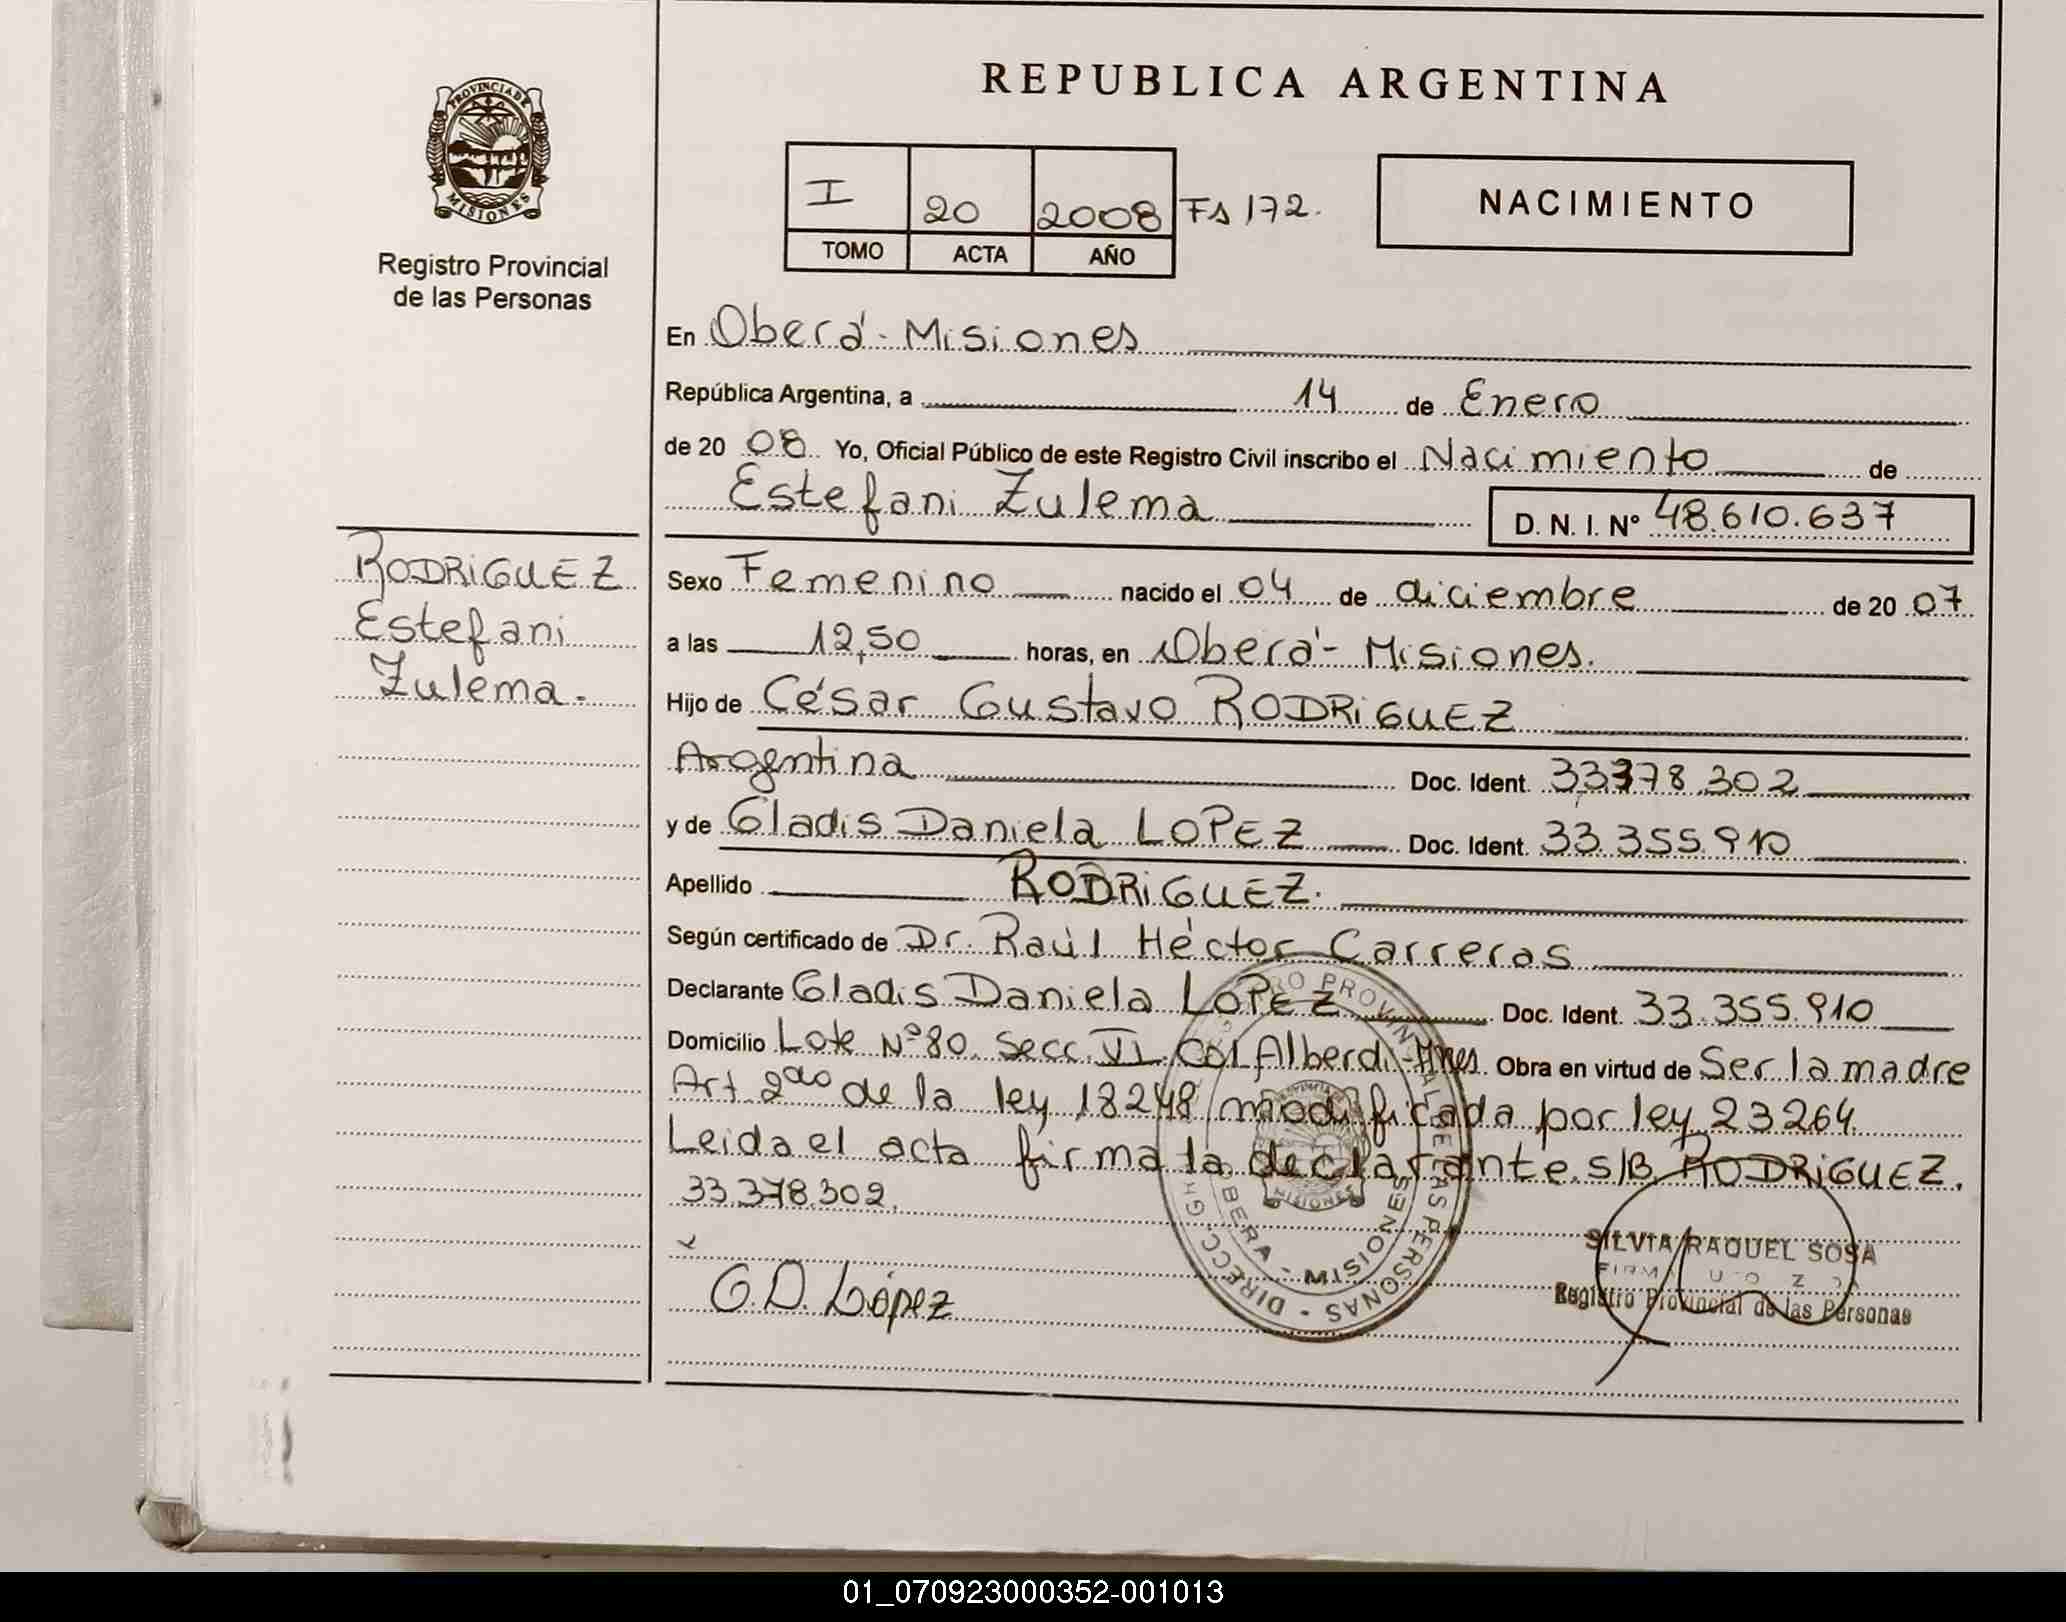 PROVINCIA DE
MISIONES
Registro Provincial
de las Personas
RODRIGUEZ
Estefani
Zulema.
REPUBLICA ARGENTINA
I 20 2008 Fs 172.
TOMO ACTA AÑO
NACIMIENTO
En Oberá - Misiones
República Argentina, a 14 de Enero
de 20 08 Yo, Oficial Público de este Registro Civil inscribo el Nacimiento de
Estefani Zulema
D. N. I. Nº 48.610.637
Sexo Femenino nacido el 04 de diciembre de 20 07
a las 12,50 horas, en Oberá - Misiones.
Hijo de César Gustavo RODRIGUEZ
Argentina Doc. Ident. 33.378.302
y de Gladis Daniela LOPEZ Doc. Ident. 33.355.910
Apellido RODRIGUEZ.
Según certificado de Dr. Raúl Héctor Carreras
Declarante Gladis Daniela LOPEZ Doc. Ident. 33.355.910
Domicilio Lote Nº 80. Secc. VI. Col Alberdi - Mnes. Obra en virtud de Ser la madre
Art. 2do de la ley 18248 modificada por ley 23264.
Leida el acta firma la declarante. S/B RODRIGUEZ.
33.378.302.
G.D. López
OBERA - MISIONES
SILVIA RAQUEL SOSA
Registro Provincial de las Personas
01_070923000352-001013